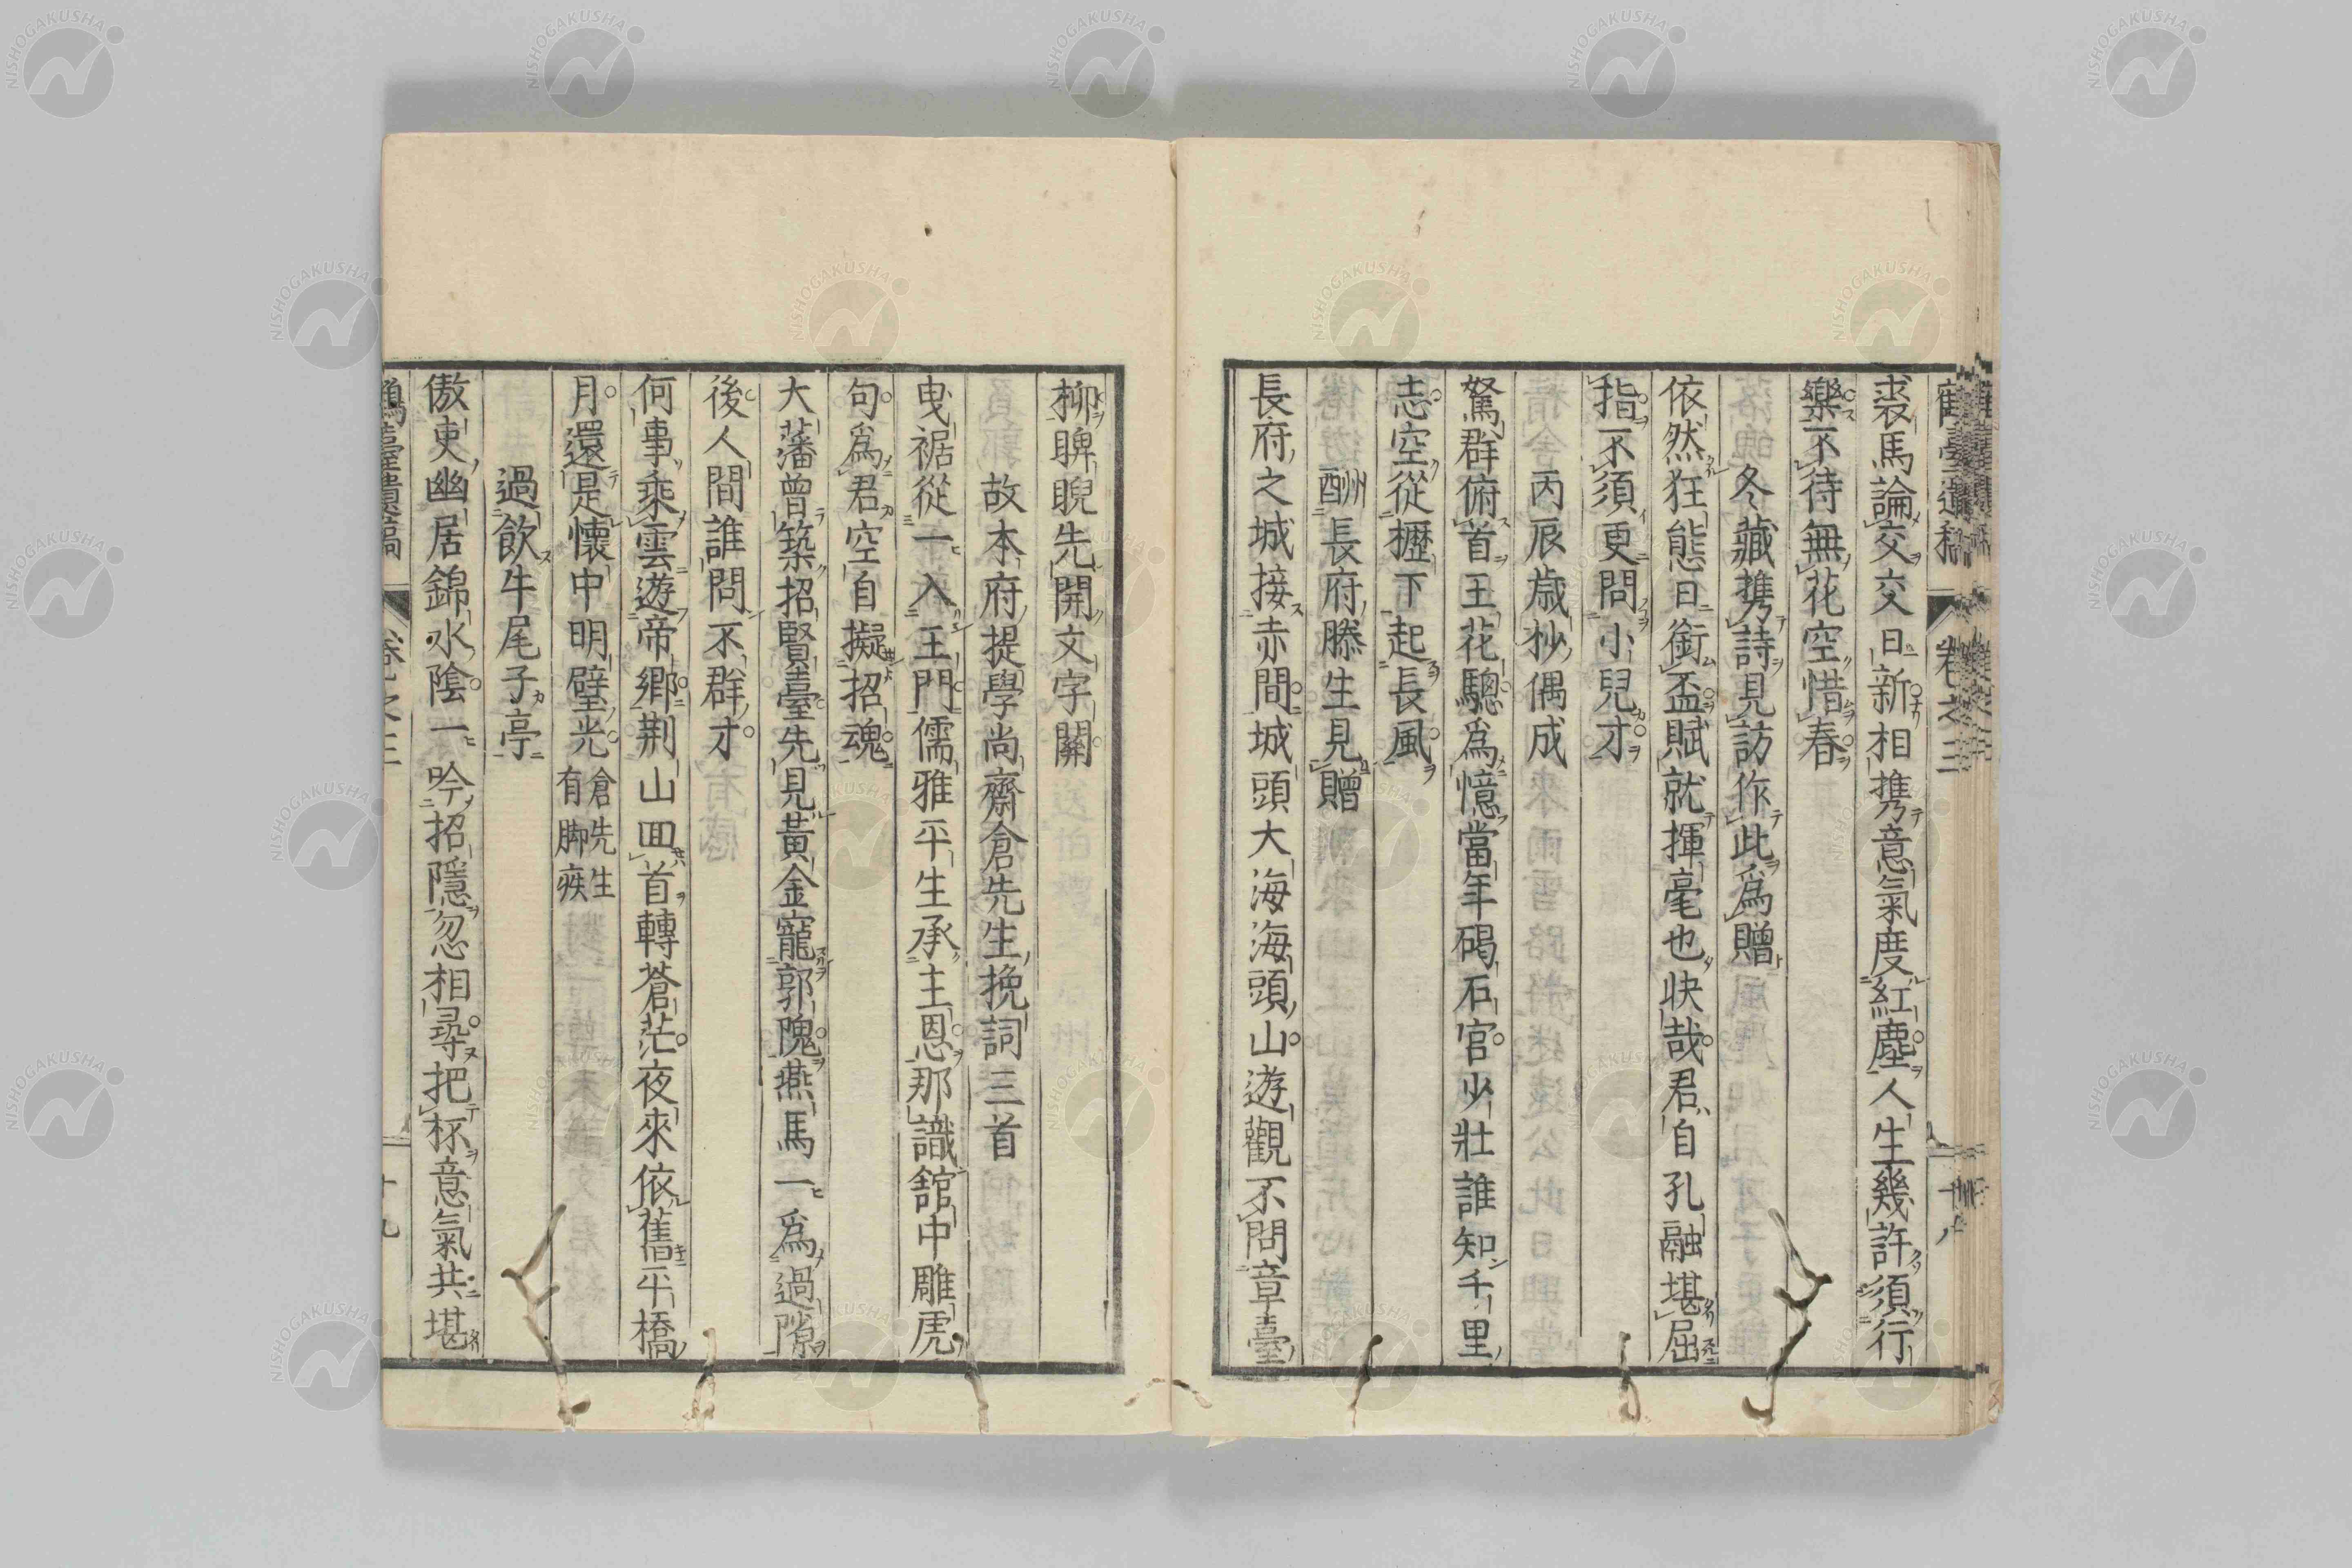 裘馬論交交日新相携意氣度紅塵人生幾許須行
樂不待無花空惜春
冬藏携詩見訪作此爲贈
依然狂態日銜盃賦就揮毫也快哉君自孔融堪屈
指不須更問小兒才
丙辰歲杪偶成
駑群俯首王花驄爲憶當年碣石宮少壯誰知千里
志空從櫪下起長風
酬長府滕生見贈
長府之城接赤間城頭大海海頭山遊觀不問章臺
柳睥睨先開文字關
故本府提學尚齋倉先生挽詞三首
曳裾從一入王門儒雅平生承主恩那識舘中雕虎
句爲君空自擬招魂
大藩曾築招賢臺先見黃金寵郭隗燕馬一爲過隙
後人間誰問不群才
何事乘雲遊帝鄉荆山回首轉蒼茫夜來依舊平橋
月還是懷中明璧光 倉先生有脚疾
過飲牛尾子亭
傲吏幽居錦水陰一吟招隱忽相尋把杯意氣共堪
鶴臺遺稿 卷之三 十九